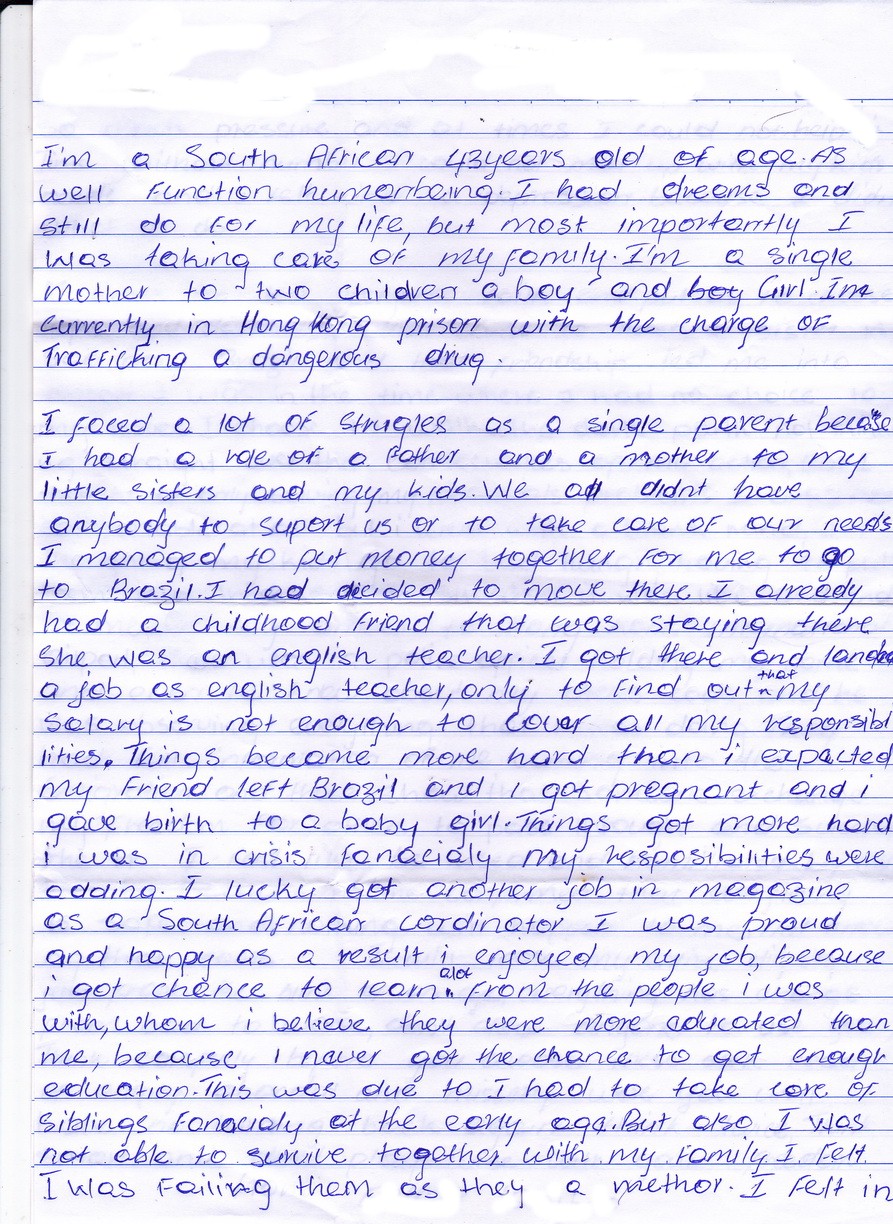 I'm a South African 43years old of age. As
well function humanbeing. I had dreams and
still do for my life, but most importantly I
was taking care of my family. I'm a single
mother to two children a boy and boy Girl. Im
currently in Hong Kong prison with the charge of
Trafficking a dangerous drug.
I faced a lot of strugles as a single parent because
I had a role of a father and a mother to my
little sisters and my kids. We all didnt have
anybody to suport us or to take care of our needs
I managed to put money together for me to go
to Brazil. I had decided to move there I already
had a childhood friend that was staying there
she was an english teacher. I got there and landed
a job as english teacher, only to find out that my
salary is not enough to cover all my responsibi
lities. Things became more hard than i expacted
my friend left Brazil and I got pregnant and i
gave birth to a baby girl. Things got more hard
i was in crisis fanacialy my resposibilities were
adding. I lucky got another job in magazine
as a South African cordinator I was proud
and happy as a result i enjoyed my job, because
i got chance to learn alot from the people i was
with, whom i believe they were more educated than
me, because I never got the chance to get enough
education. This was due to I had to take care of
siblings fanacialy at the early age. But also I was
not able to survive together with my family I felt
I was failing them as they a mother. I felt in